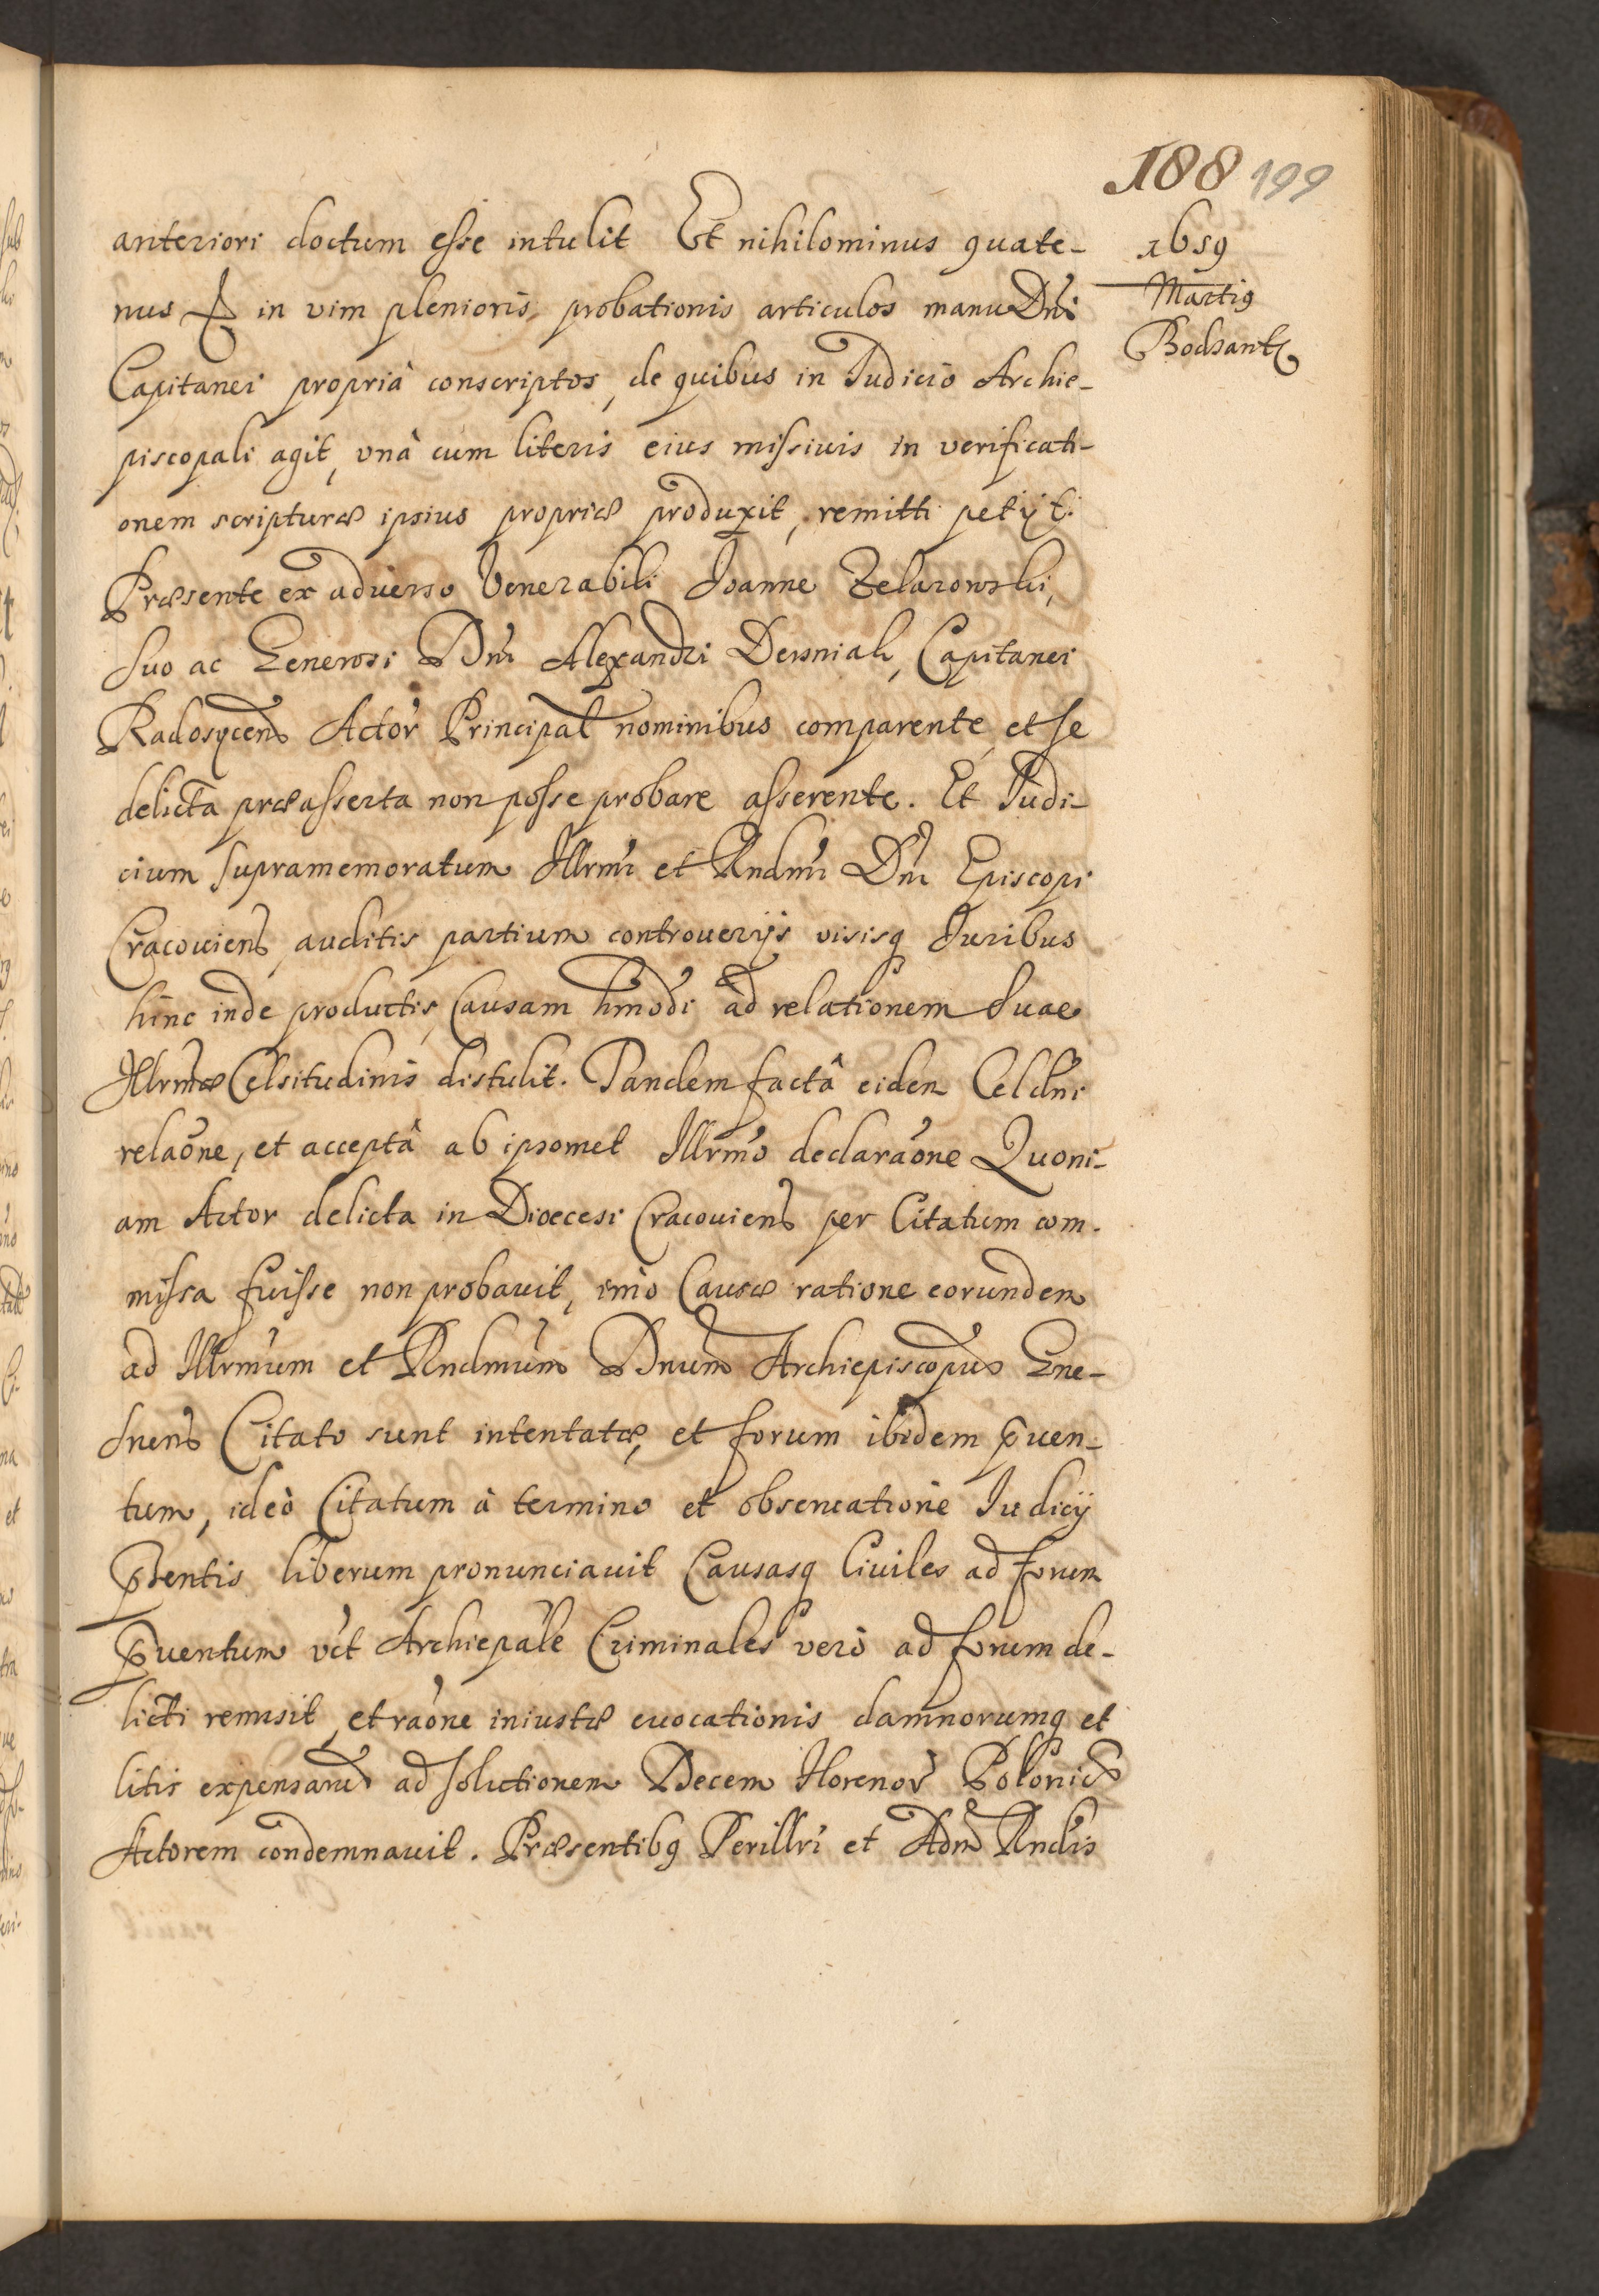 188 199
1659
Martig
Bodzant
anteriori doctum esse intulit Et nihilominus quate-
nus in vim plenioris probationis articulos manu Dni
Capitanei propriâ conscriptos, de quibus in Iudicio Archie-
piscopali agit, vnà cum literis eius missiuis in verificati-
onem scripturæ ipsius propriæ produxit, remitti petijt.
Præsente ex aduerso Venerabili Ioanne Zelazowski,
Suo ac Generosi Dni Alexandri Dersniak, Capitanei
Radosycens Actor Principal nominibus comparente, et se
delicta præasserta non posse probare asserente. Et Iudi-
cium supramemoratum Illrmi et Rndmi Dni Episcopi
Cracouiens, auditis partium controuersijs visisq Iuribus
hinc inde productis, Causam hmodi ad relationem Suae
Illrmæ Celsitudinis distulit. Tandem factâ eidem Celdni
relaõne, et acceptâ ab ipsomet Illrmo declaraõne Quoni-
am Actor delicta in Dioecesi Cracouiens per Citatum com-
missa fuisse non probauit, imò Causæ ratione eorundem
ad Illrmum et Rndmum Dnum Archiepiscopum Gne-
snens Citato sunt intentatæ, et forum ibidem pven-
tum, ideò Citatum à termino et obseruatione Iudicij
pntis liberum pronunciauit Causasq Ciuiles ad forum
pventum vct Archiepale Criminales verò ad forum de-
licti remisit, et raõne iniustæ euocationis damnorumq et
litis expensarum ad solutionem Decem florenor Polonic
Actorem condemnauit. Præsentibq Perillri et Adm Rndis